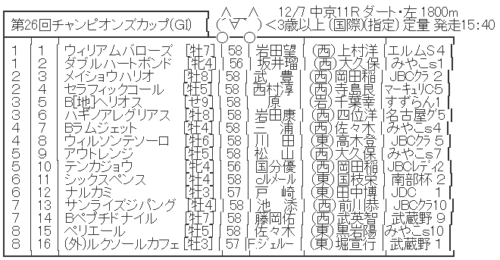 第26回チャンピオンズカップ(GI) (´∀`)<3歳以上(国際)(指定) 定量 発走15:40
12/7 中京11R ダート・左 1800m
1 1 ウィリアムバローズ [牡7] 58 岩田望 (西)上村洋 エルムS4
1 2 ダブルハートボンド [牝4] 56 坂井瑠 (西)大久保 みやこs1
2 3 メイショウハリオ [牡8] 58 武 豊 (西)岡田稲 JBCクラ2
2 4 セラフィックコール [牡5] 58 西村淳 (西)寺島良 マーキュリC5
3 5 B[地]ヘリオス [せ9] 58 原 (岩)千葉幸 すずらん1
3 6 ハギノアレグリアス [牡8] 58 岩田康 (西)四位洋 名古屋グ5
4 7 Bラムジェット [牡4] 58 三 浦 (西)佐々木 みやこs4
4 8 ウィルソンテソーロ [牡6] 58 川 田 (東)高木登 JBCクラ5
5 9 アウトレンジ [牡5] 58 松 山 (西)大久保 みやこs7
5 10 テンカジョウ [牝4] 56 国分優 (西)岡田稲 JBCレディ2
6 11 シックスペンス [牡4] 58 C.ルメール (東)国枝栄 南部杯2
6 12 ナルカミ [牡3] 57 戸 崎 (東)田中博 JDC 1
7 13 サンライズジパング [牡4] 58 池 添 (西)前川恭 JBCクラ10
7 14 Bペプチドナイル [牡7] 58 藤岡佑 (西)武英智 武蔵野9
8 15 ペリエール [牡5] 58 佐々木 (東)黒岩陽 みやこs10
8 16 (外)ルクソールカフェ [牡3] 57 F.ジェルー (東)堀宣行 武蔵野1